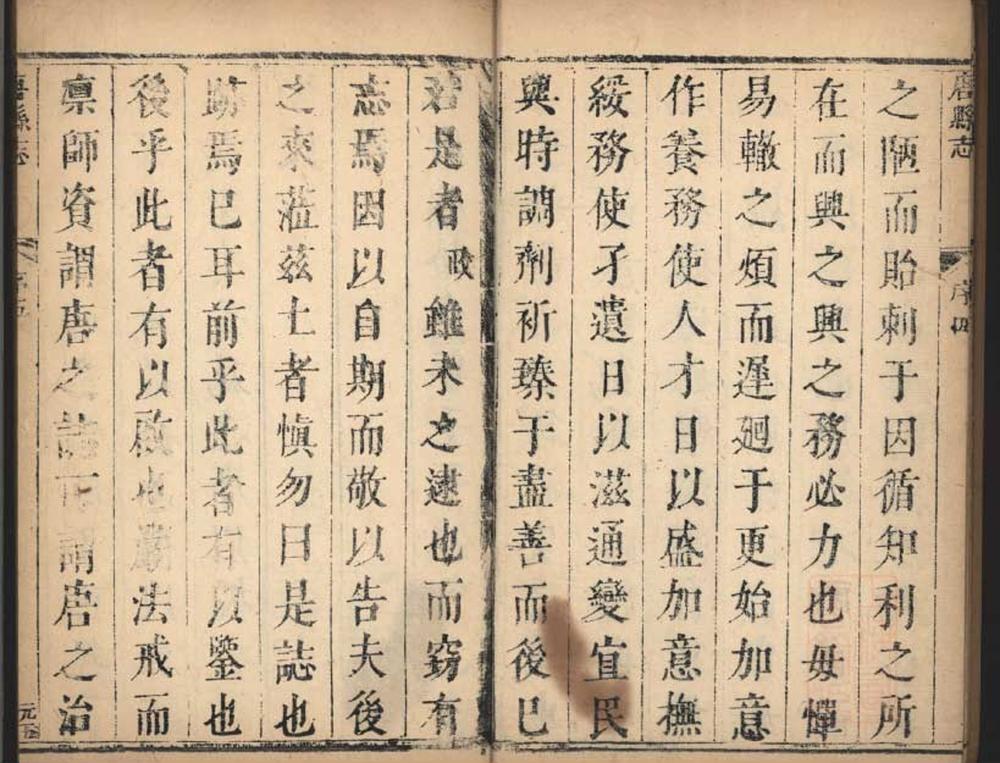 唐縣志
序四
之陋而貽刺于因循知利之所
在而興之興之務必力也毋憚
易轍之煩而遲廻于更始加意
作養務使人才日以盛加意撫
綏務使孑遺日以滋通變宜民
與時調劑祈臻于盡善而後已
若是者政雖未之逮也而窃有
志焉因以自期而敬以告夫後
之來蒞茲土者愼勿曰是誌也
跡焉已耳前乎此者有以鑒也
後乎此者有以啟也嚴法戒而
凛師資謂唐之誌可謂唐之治
唐縣志